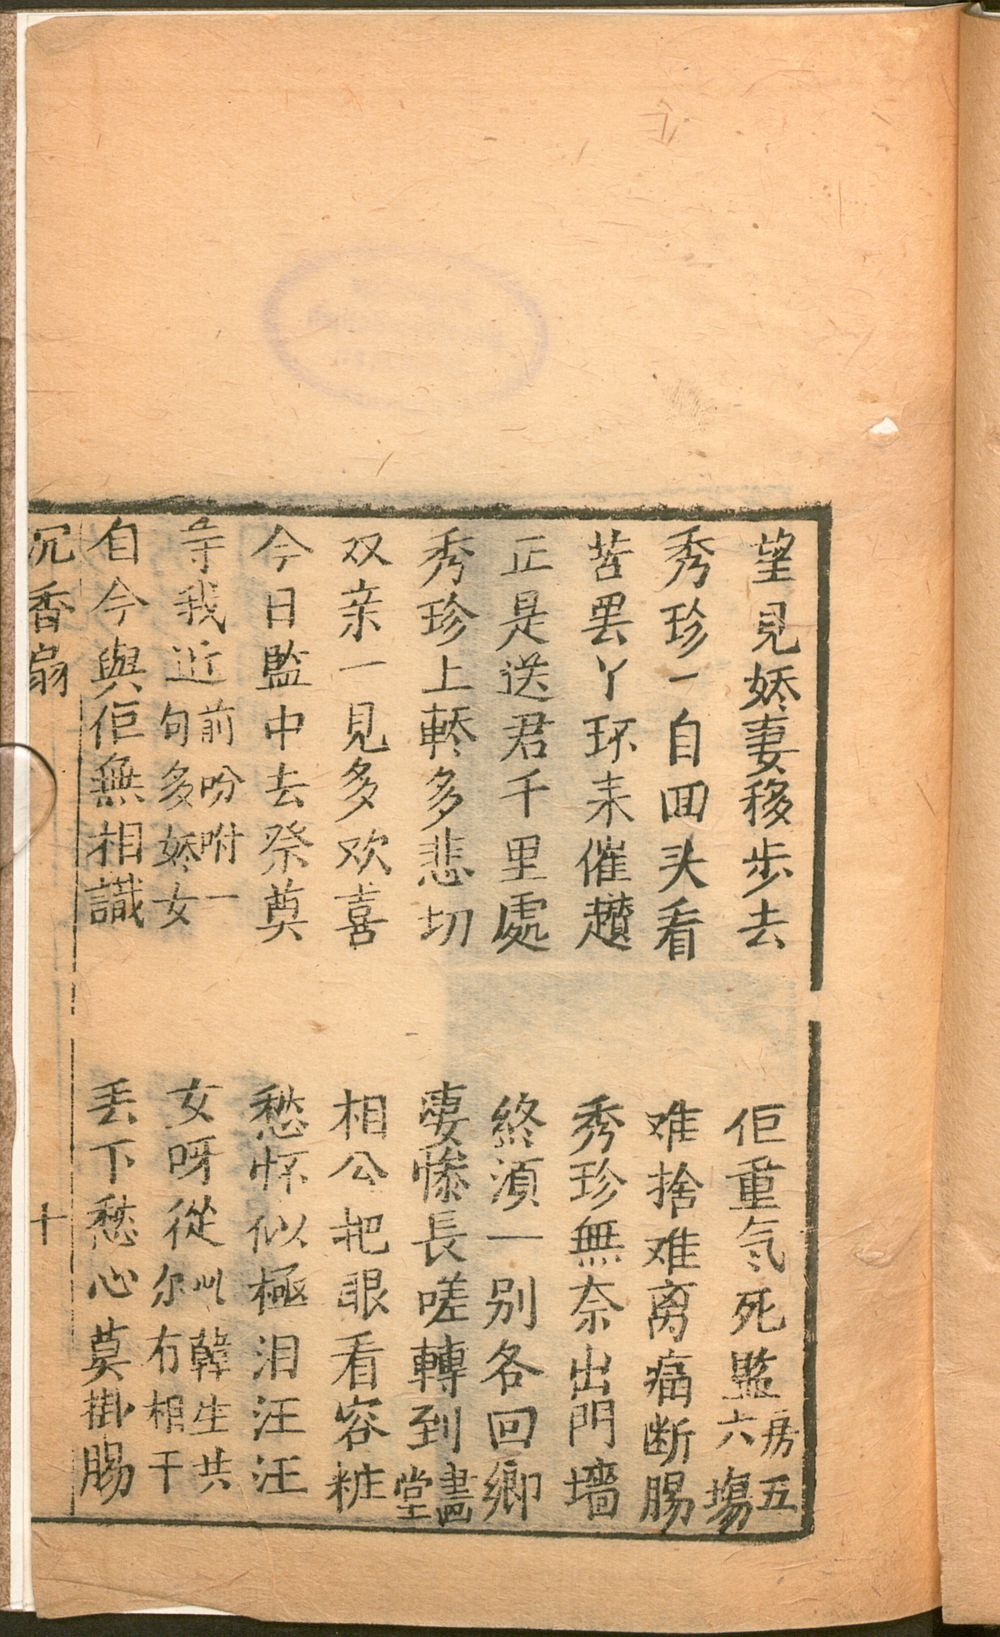 望見娇妻移步去　佢重気死監房五六塲
秀珍一自囬头看　难捨难离痛断腸
苦罢丫环来催趲　秀珍無奈出門墻
正是送君千里處　終須一别各回鄉
秀珍上轿多悲切　凄惨長嗟轉到畫堂
双亲一見多欢喜　相公把眼看容粧
今日監中去祭奠　愁怀似極泪汪汪
等我近前吩咐一句多娇女　女呀從此韓生共尔冇相干
自今與佢無相識　丢下愁心莫掛腸
沉香扇　十